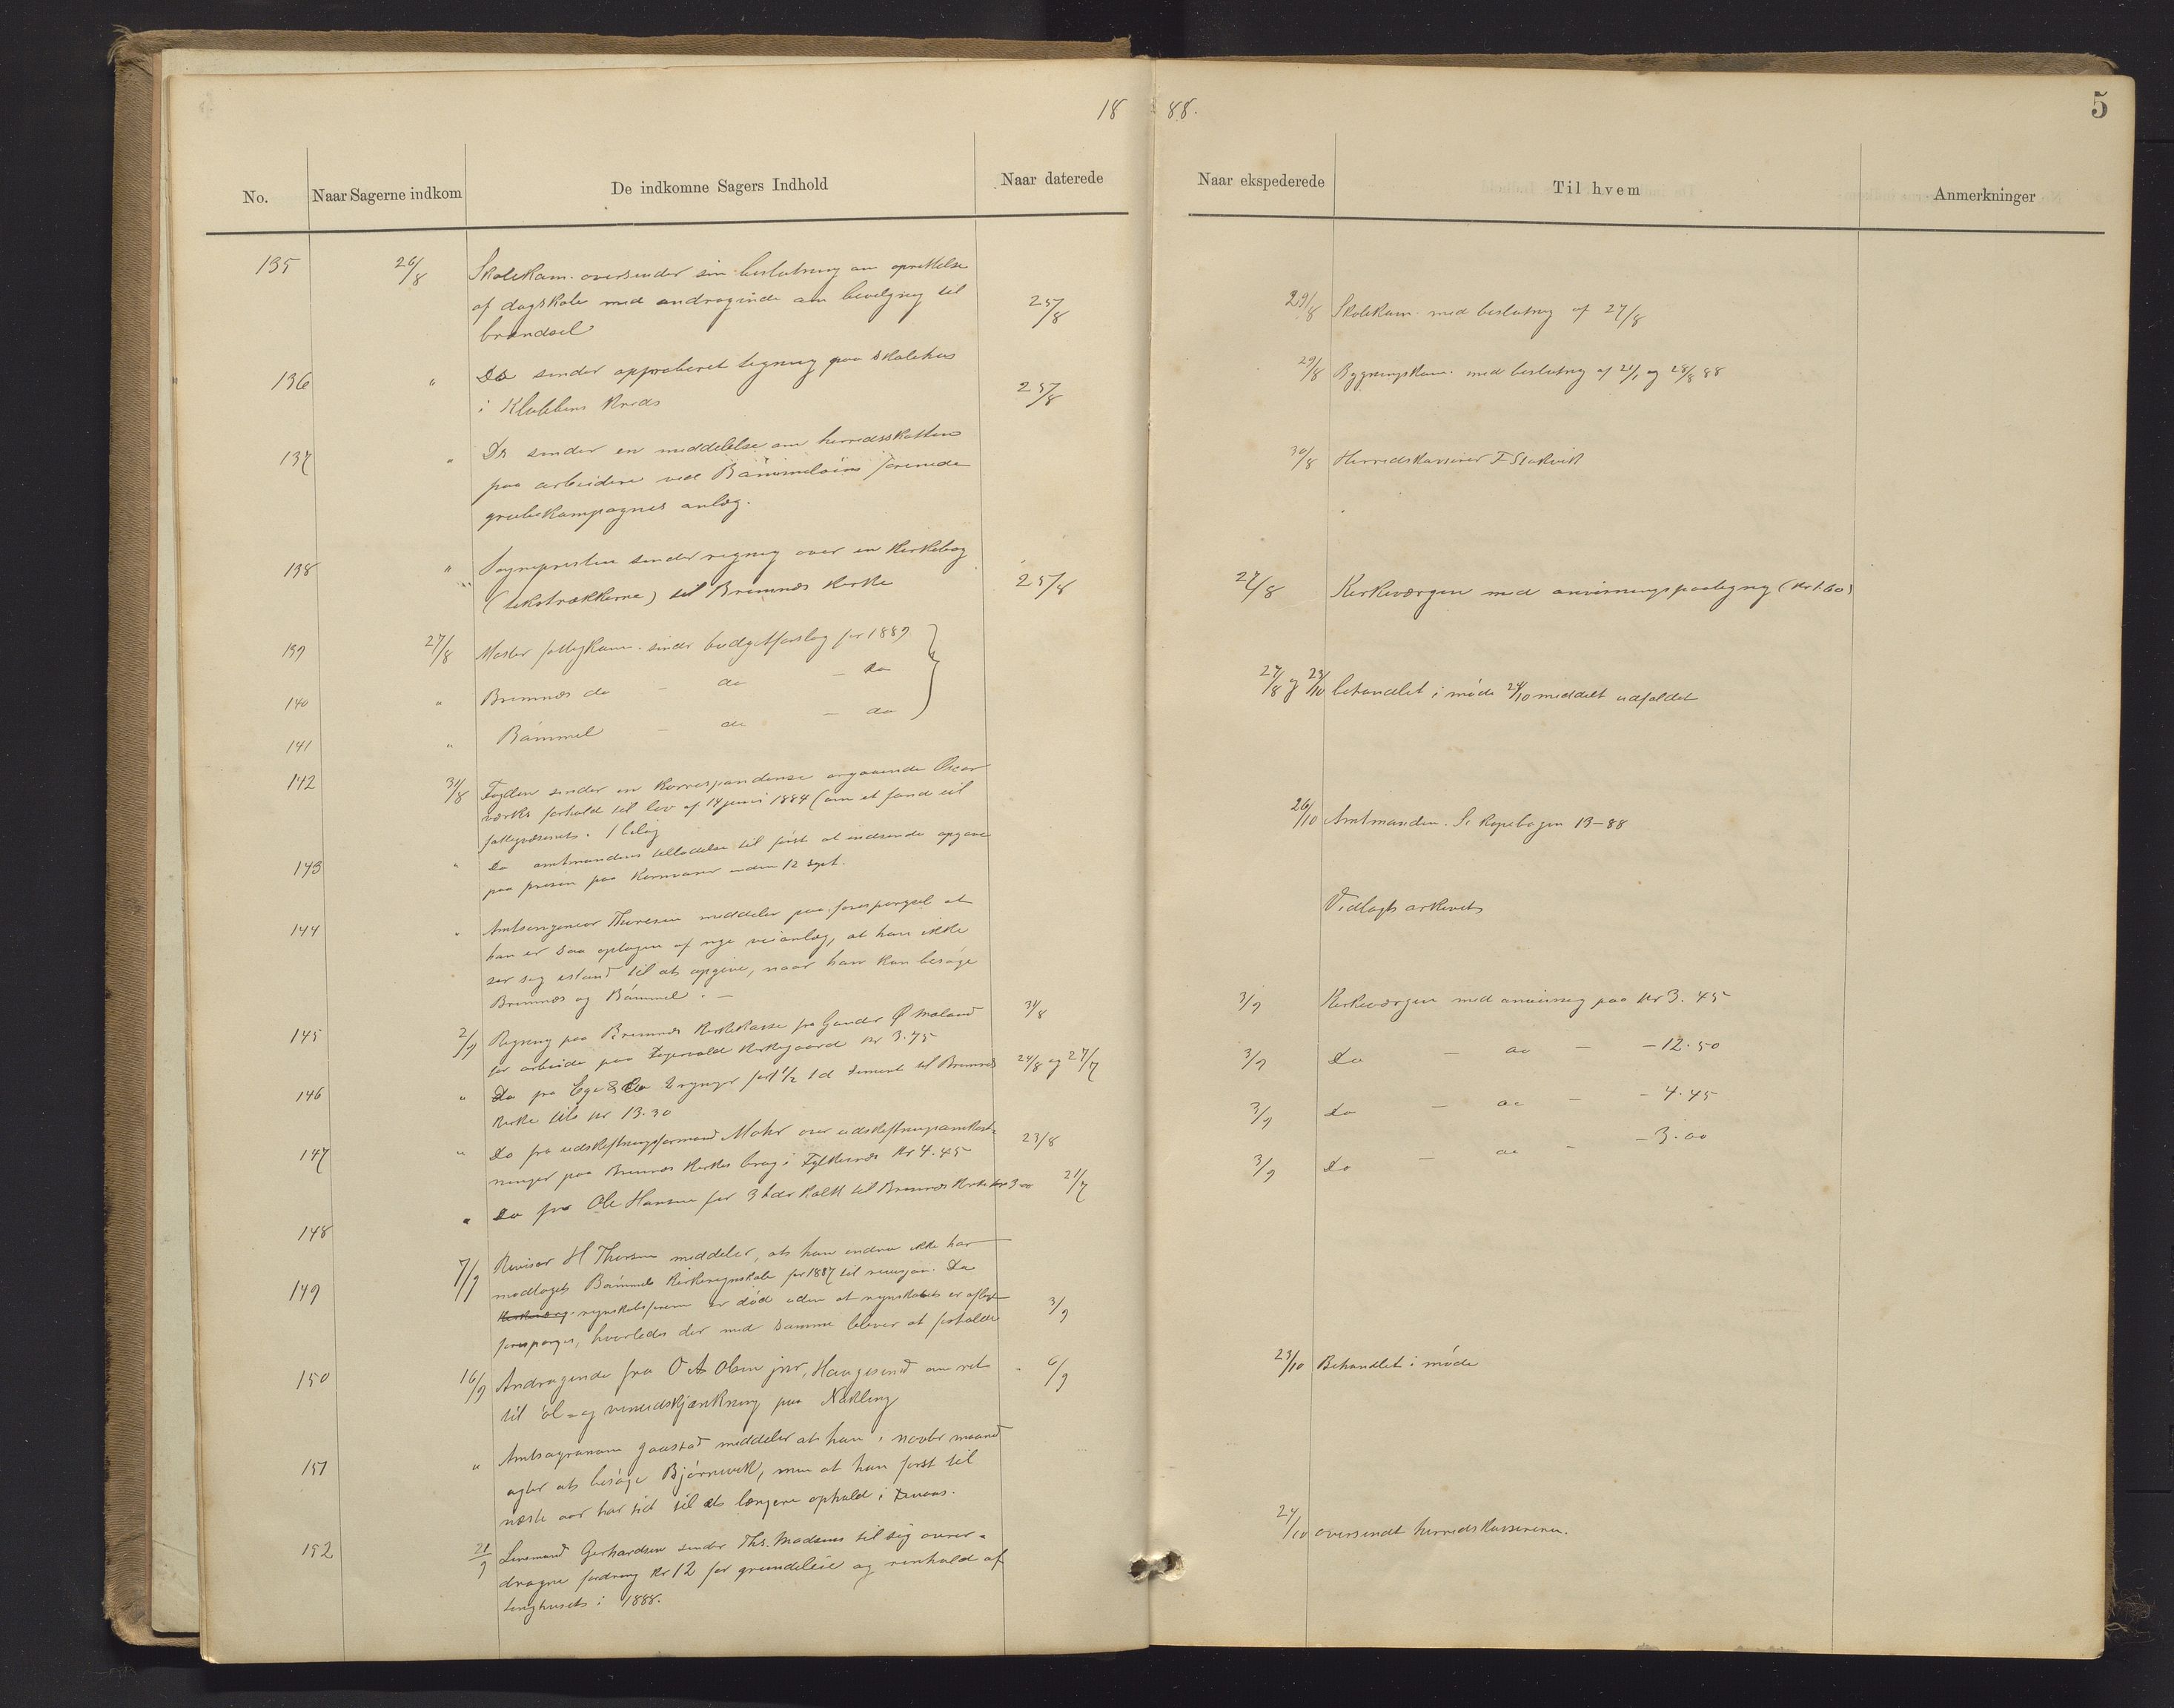 18 88.
5
No. Naar Sagerne indkom De indkomne Sagers Indhold Naar daterede Naar ekspederede Til hvem Anmerkninger
135 26/8 Skolekom. oversender sin beslutning om oprettelse
af dagskole med andragende om bevilgning til
brændsel 25/8 29/8 Skolekom. med beslutning af 27/8
136 " Do sender approberet tegning paa skolehus
i Klubbens Kreds 25/8 29/8 Bygningskom. med beslutning af og 28/8 88
137 " Do sender en meddelelse om herredsskatten
paa arbeidere ved Bømmeløens forenede
grubekompagnies anlæg. 30/8 Herredskasserer F Stokvik
138 " Sognepresten sender regning over en Kirkebog
(tekstrækkerne) til Bremnes Kirke 25/8 27/8 Kirkeværgen med anvisningspaategning (Kr 1.60)
139 27/8 Moster fattigkom. sender budgetforslag for 1889
140 " Bremnes do - do - do
141 " Bømmel - do - do
27/8 og 23/10 behandlet i møde 24/10 meddelt udfaldet
142 31/8 Fogden sender en Korrespondense angaaende Oscar
værks forhold til lov af 14 juni 1884 (om et fond til
fattigvæsenet. 1 bilag 26/10 Amtmanden. Se Kopibogen 13-88
143 " Do amtmandens tilladelse til først at indsende opgave
paa prisen paa Kornvarer inden 12 sept.
Vedlagt arkivet
144 " Amtsingeniør Thoresen meddeler paa forespørgsel at
han er saa optagen af nye veianlæg, at han ikke
ser sig istand til at opgive, naar han kan besøge
Bremnes og Bømmel. —
145 2/9 Regning paa Bremnes Kirkekasse fra Gunder Ø Maland 31/8 3/9 Kirkeværgen med anvisning paa Kr 3.45
for arbeide paa Kirkegaard Kr 3.75
146 " Do fra Ege & Co 2 regninger for 1 1/2 td cement til Bremnes 24/8 og 27/7 3/9 Do - do - - 12.50
Kirke tils Kr 13.30
147 " Do fra udskiftningsformand Mohr over udskiftningsomkost- 23/8 3/9 Do - do - - 4.45
ninger paa Bremnes Kirkes brug i Kr 4.45
148 " Do fra Ole Hansen for 3 tdr Kalk til Bremnes Kirke Kr 3.00 21/7 3/9 Do - do - - 3.00
149 7/9 Revisor H Thorsen meddeler, at han endnu ikke har
modtaget Bømmels Kirkeregnskab for 1887 til revision. Da
regnskabsføreren er død uden at regnskabet er aflagt 3/9
forespørges, hvorledes der med samme bliver at forholde
150 16/9 Andragende fra O A Olsen jnr, Haugesund om ret 6/9 23/10 Behandlet i møde
til øl- og vinudskjænkning paa Nekling
151 " Amtsagronom Gaustad meddeler at han i novbr maaned
agter at besøge Bjørnevik, men at han først til
næste aar har tid til et længere ophold i
152 21/9 Lensmand Gerhardsen sender Ths. Madsens til sig over- 24/10 oversendt herredskassereren.
dragne fordring Kr 12 for grundleie og renhold af
tinghuset i 1888.